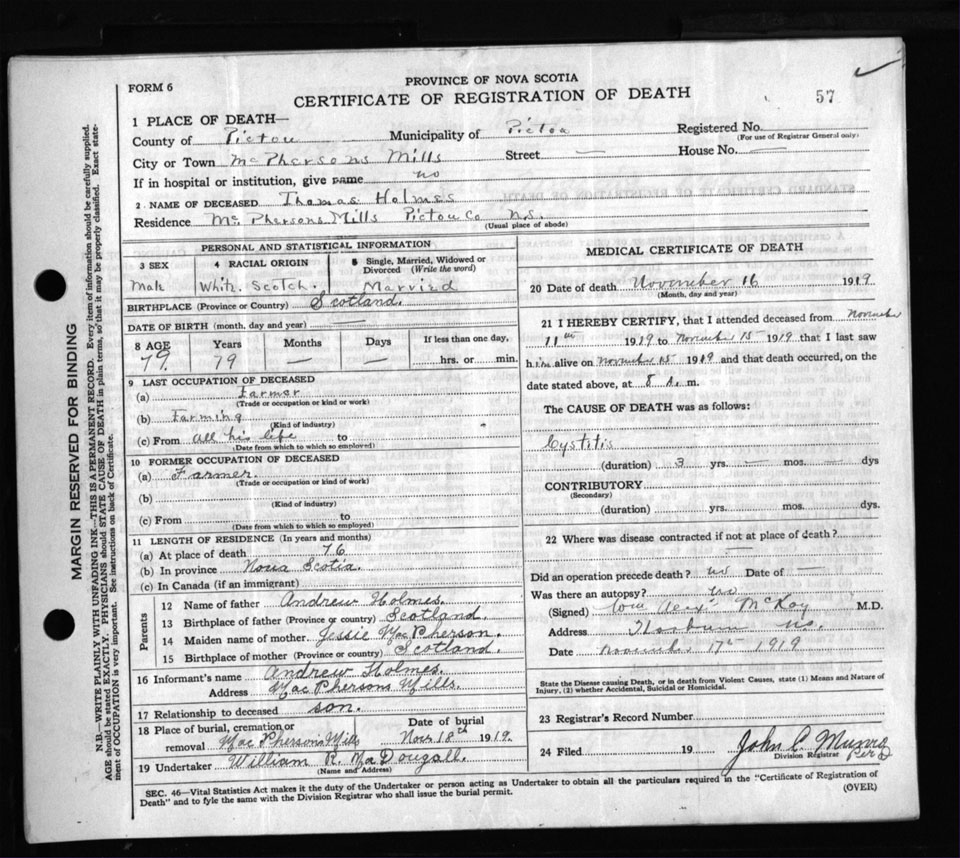 PROVINCE OF NOVA SCOTIA
FORM 6
CERTIFICATE OF REGISTRATION OF DEATH
57
1 PLACE OF DEATH—
County of Pictou Municipality of Pictou Registered No.
(For use of Registrar General only)
City or Town McPhersons Mills Street — House No. —
If in hospital or institution, give name no
2 NAME OF DECEASED Thomas Holmes
Residence McPhersons Mills Pictou Co N.S.
(Usual place of abode)
PERSONAL AND STATISTICAL INFORMATION
3 SEX 4 RACIAL ORIGIN 5 Single, Married, Widowed or Divorced (Write the word)
Male Whit. Scotch. Married
BIRTHPLACE (Province or Country) Scotland.
DATE OF BIRTH (month, day and year) —
8 AGE Years Months Days If less than one day,
79. 79 — — hrs. or min.
9 LAST OCCUPATION OF DECEASED
(a) Farmer
(Trade or occupation or kind of work)
(b) Farming
(Kind of industry)
(c) From all his life to
(Date from which to which so employed)
10 FORMER OCCUPATION OF DECEASED
(a) Farmer.
(Trade or occupation or kind of work)
(b)
(Kind of industry)
(c) From to
(Date from which to which so employed)
11 LENGTH OF RESIDENCE (In years and months)
(a) At place of death 76
(b) In province Nova Scotia.
(c) In Canada (if an immigrant)
Parents
12 Name of father Andrew Holmes.
13 Birthplace of father (Province or country) Scotland.
14 Maiden name of mother Jessie MacPherson.
15 Birthplace of mother (Province or country) Scotland.
16 Informant's name Andrew Holmes.
Address MacPhersons Mills.
17 Relationship to deceased son.
18 Place of burial, cremation or removal MacPhersons Mills Date of burial Nov. 18th 1919.
19 Undertaker William R. MacDougall.
(Name and Address)
MEDICAL CERTIFICATE OF DEATH
20 Date of death November 16 1919
(Month, day and year)
21 I HEREBY CERTIFY, that I attended deceased from November
11th 1919 to November 15 1919 that I last saw
him alive on November 15 1919 and that death occurred, on the
date stated above, at 8 A. m.
The CAUSE OF DEATH was as follows:
Cystitis
(duration) 3 yrs. — mos. — dys
CONTRIBUTORY
(Secondary)
(duration) yrs. mos. dys.
22 Where was disease contracted if not at place of death?
—
Did an operation precede death? no Date of —
Was there an autopsy? no
(Signed) Wm Alex McKay M.D.
Address Thorburn N.S.
Date November 17th 1919
State the Disease causing Death, or in death from Violent Causes, state (1) Means and Nature of
Injury, (2) whether Accidental, Suicidal or Homicidal.
23 Registrar's Record Number
24 Filed 19 John C. Munro
Division Registrar Per
SEC. 46—Vital Statistics Act makes it the duty of the Undertaker or person acting as Undertaker to obtain all the particulars required in the "Certificate of Registration of
Death" and to fyle the same with the Division Registrar who shall issue the burial permit.
(OVER)
MARGIN RESERVED FOR BINDING
N.B.—WRITE PLAINLY WITH UNFADING INK—THIS IS A PERMANENT RECORD. Every item of information should be carefully supplied.
AGE should be stated EXACTLY. PHYSICIANS should STATE CAUSE OF DEATH in plain terms, so that it may be properly classified. Exact state-
ment of OCCUPATION is very important. See instructions on back of Certificate.